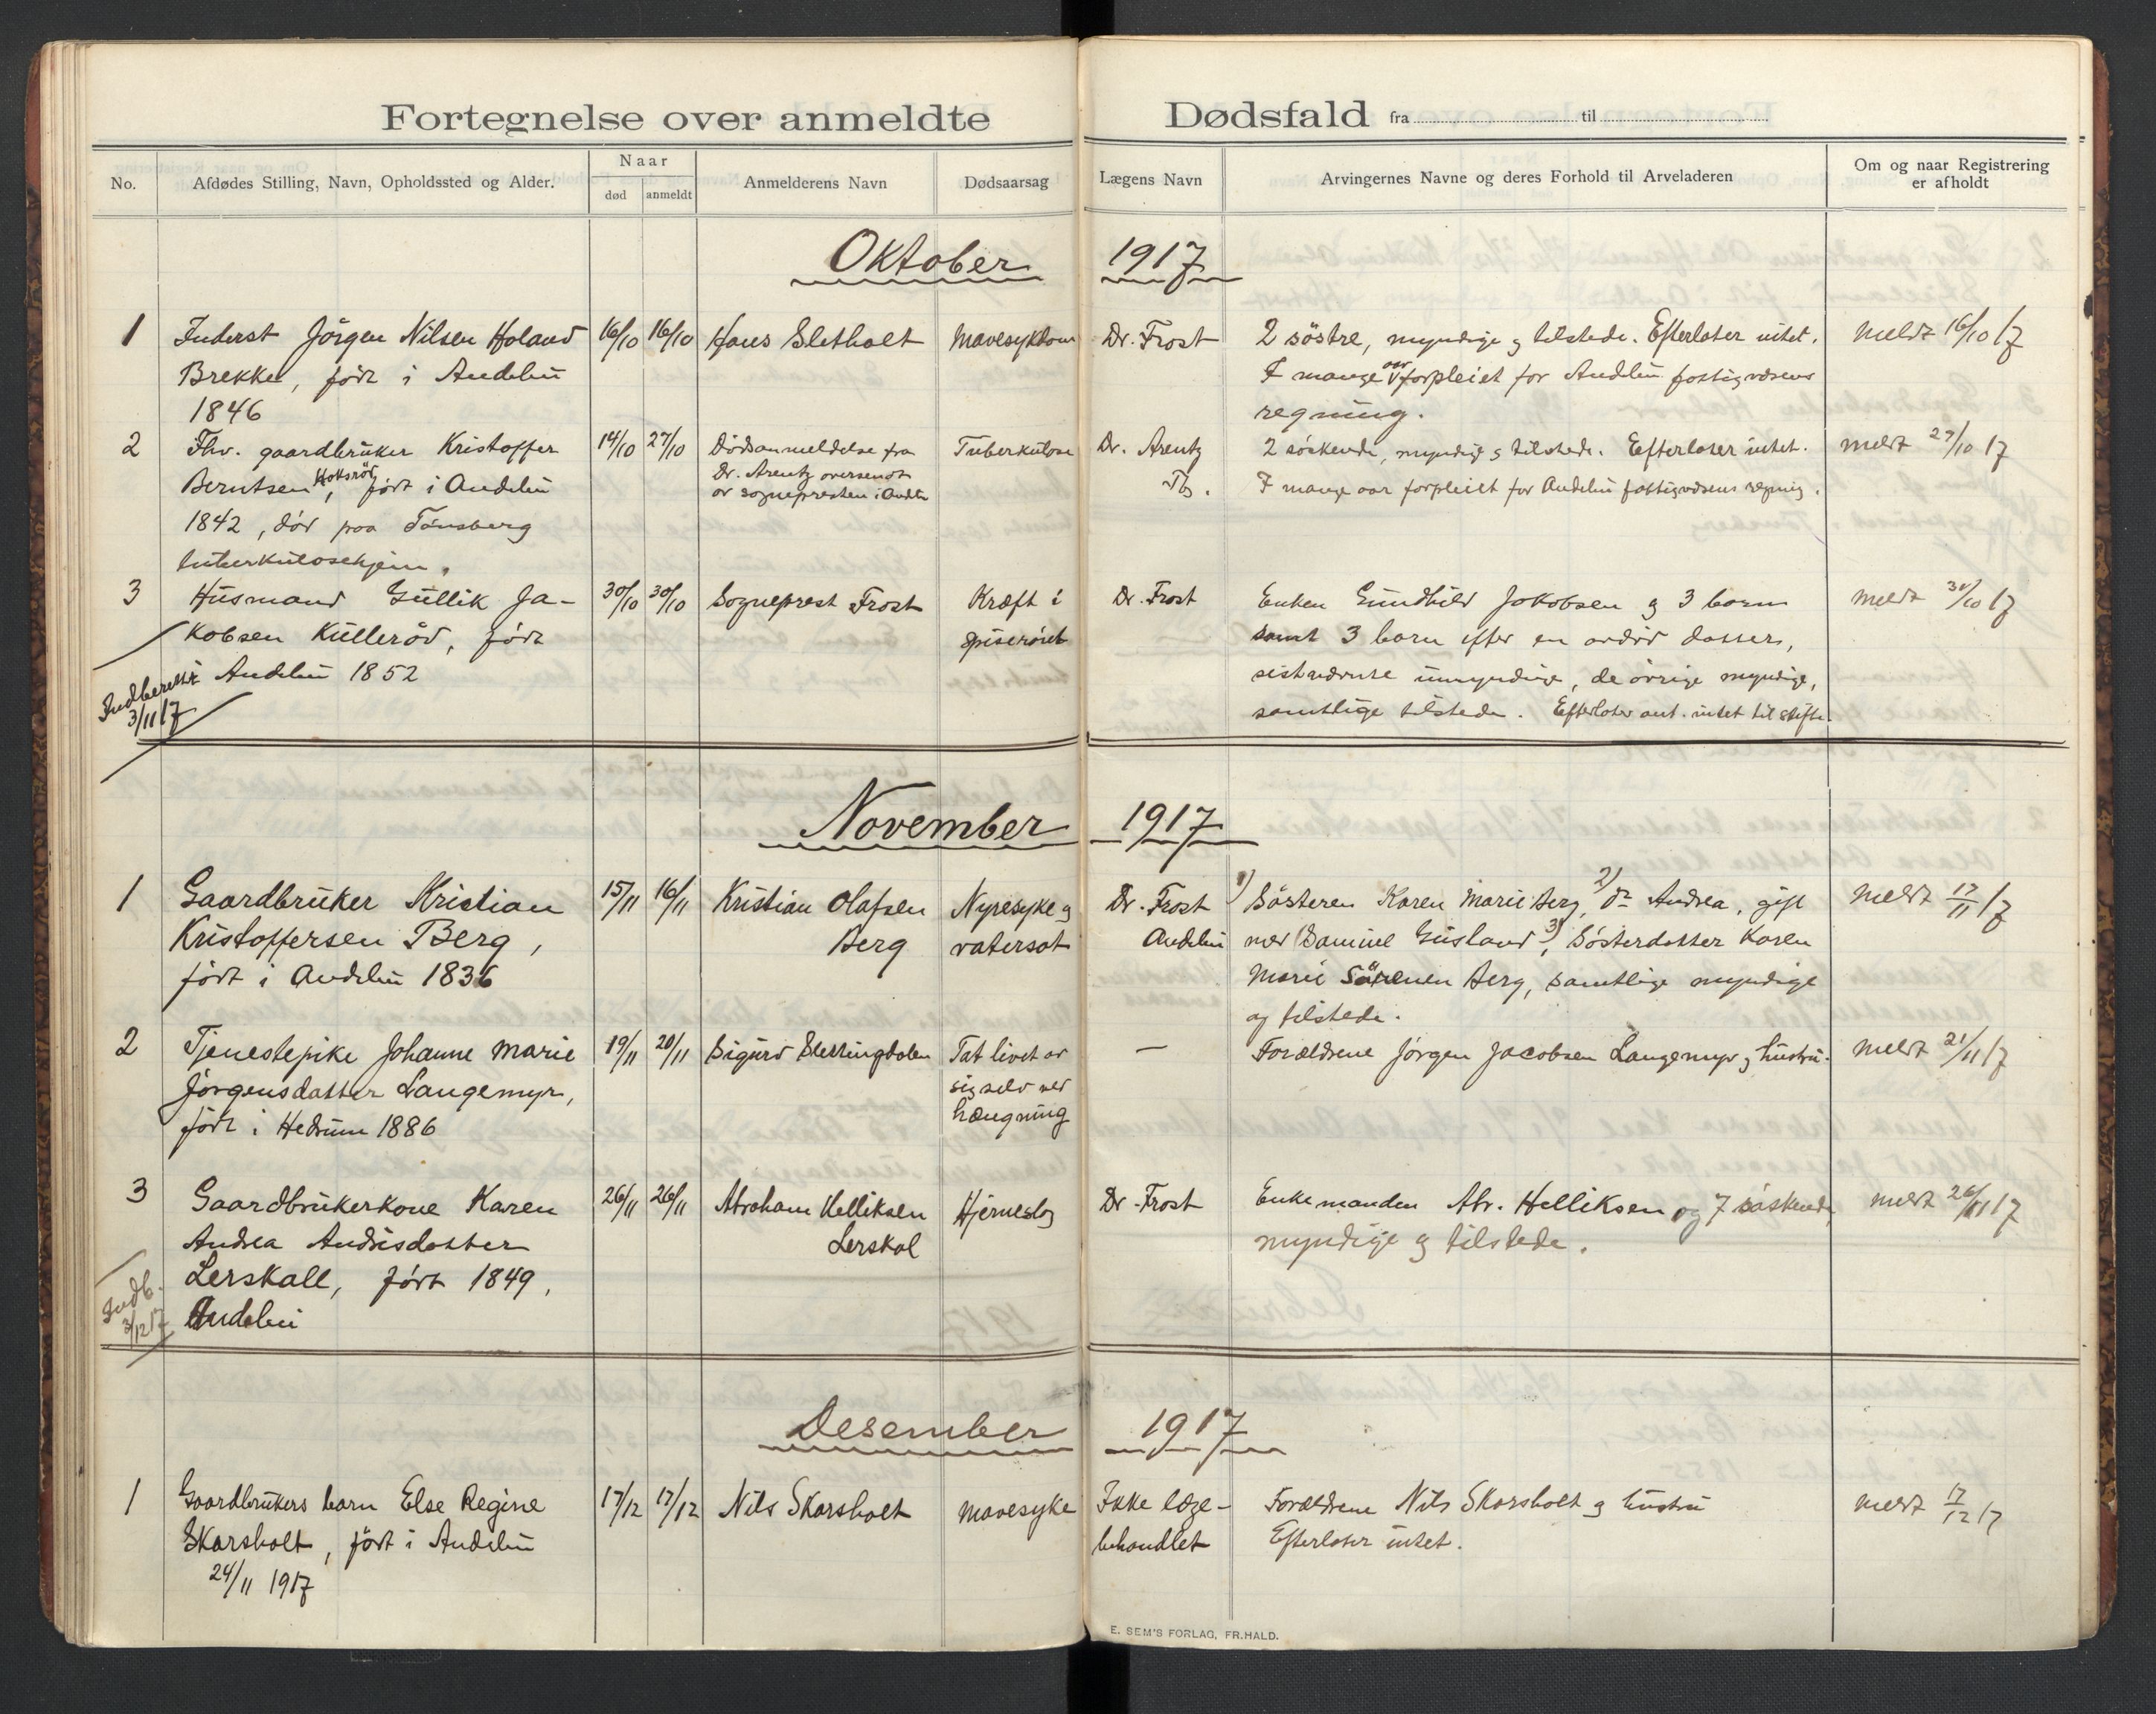 Fortegnelse over anmeldte Dødsfald fra til
No.
Afdødes Stilling, Navn, Opholdssted og Alder.
Naar
død
anmeldt
Anmelderens Navn
Dødsaarsag
Lægens Navn
Arvingernes Navne og deres Forhold til Arveladeren
Om og naar Registrering
er afholdt
Oktober 1917
1
Inderst Jörgen Nilsen Holand
Brekke, födt i Andebu
1846
16/10
16/10
Hans Sletholt
Mavesykdom
Dr. Frost
2 söstre, myndige og tilstede. Efterlater intet.
I mange aar forpleiet for Andebu fattigvæsens
regning.
meldt 16/10 17
2
Fhv. gaardbruker Kristoffer
Berntsen Hotsröd, födt i Andebu
1842, död paa Tönsberg
tuberkulosehjem.
14/10
27/10
Dödsanmeldelse fra
Dr. Arentz oversendt
av sognepresten i Andebu
Tuberkulose
Dr. Arentz
Tbg.
2 söskende, myndige og tilstede. Efterlater intet.
I mange aar forpleiet for Andebu fattigvæsens regning.
meldt 27/10 17
3
Husmand Gullik Ja-
kobsen Kulleröd, födt
i Andebu 1852
30/10
30/10
Sogneprest Frost
Kræft i
spiseröret
Dr. Frost
Enken Gundhild Jakobsen og 3 barn
samt 3 barn efter en avdöd datter,
sistnævnte umyndige, de övrige myndige,
samtlige tilstede. Efterlater ant. intet til skifte.
meldt 30/10 17
Indberettet
3/11 17
November 1917
1
Gaardbruker Kristian
Kristoffersen Berg,
födt i Andebu 1836
15/11
16/11
Kristian Olafsen
Berg
Nyresyke og
vatersot
Dr. Frost
Andebu
1) Sösteren Karen Marie Berg, 2) do Andrea, gift
med Samuel Gusland, 3) Sösterdatter Karen
Marie Sörensen Berg, samtlige myndige
og tilstede.
meldt 17/11 17
2
Tjenestepike Johanne Marie
Jörgensdatter Langemyr,
födt i Hedrum 1886
19/11
20/11
Sigurd Slettingdalen
Tat livet av
sig selv ved
hængning
—
Forældrene Jörgen Jacobsen Langemyr og hustru.
meldt 21/11 17
3
Gaardbrukerkone Karen
Andrea Andrisdatter
Lerskall, födt 1849,
Andebu
26/11
26/11
Abraham Helliksen
Lerskal
Hjerneslag
Dr. Frost
Enkemanden Abr. Helliksen og 7 söskende,
myndige og tilstede.
meldt 26/11 17
Indb.
3/12 17
Desember 1917
1
Gaardbrukers barn Else Regine
Skarsholt, födt i Andebu
24/11 1917
17/12
17/12
Nils Skarsholt
Mavesyke
Ikke læge-
behandlet
Forældrene Nils Skarsholt og hustru
Efterlater intet.
meldt 17/12 17
E. SEM'S FORLAG, FR.HALD.